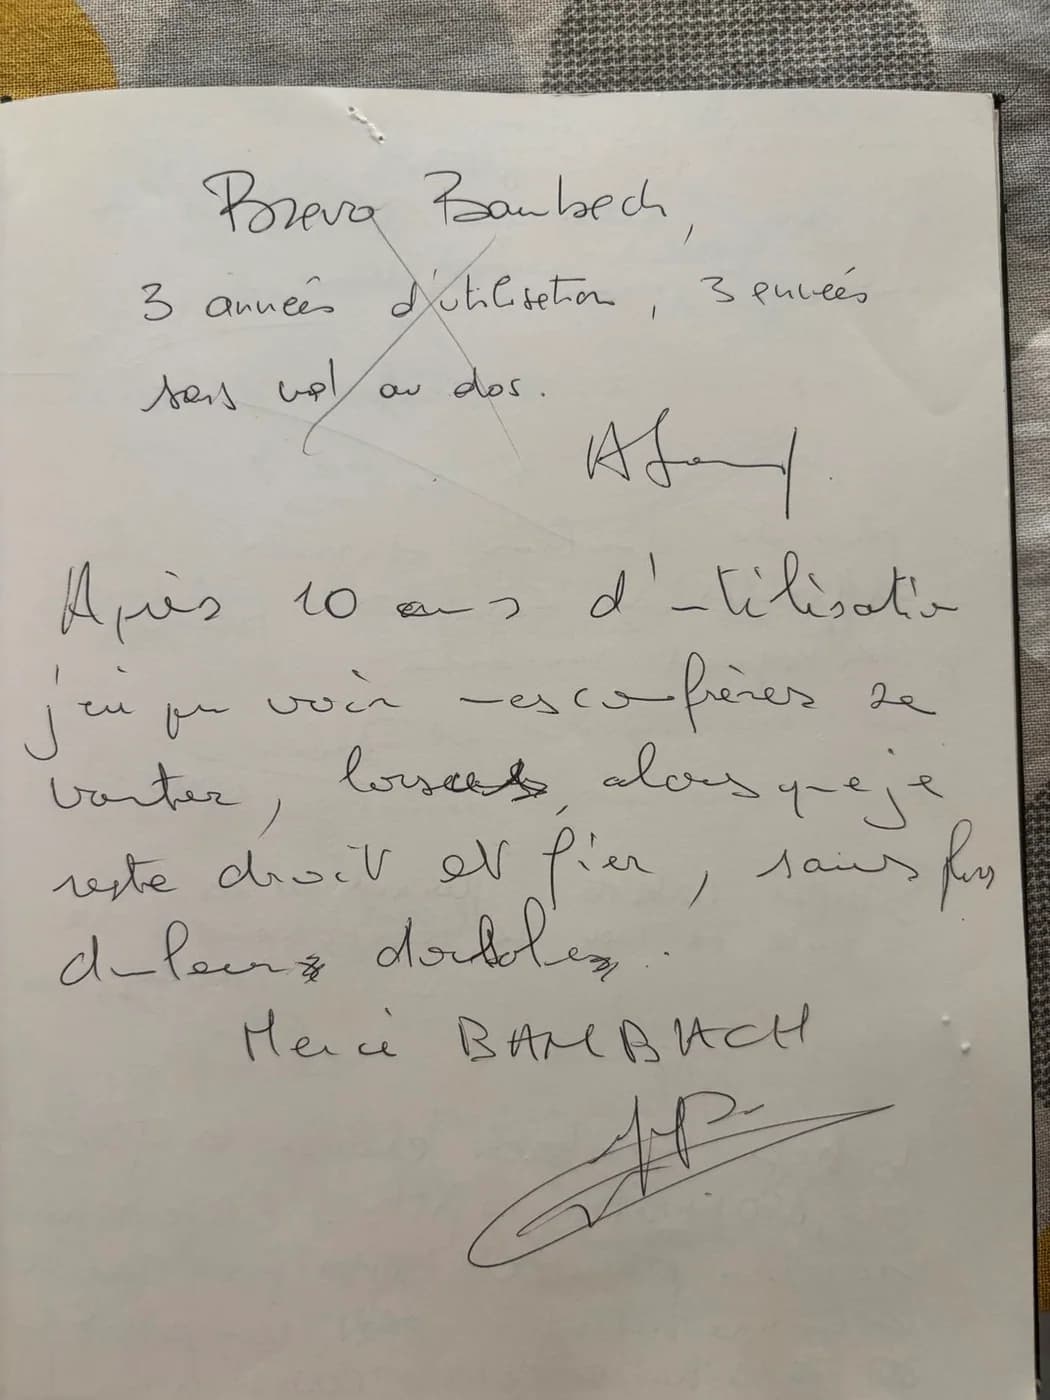 Bravo Bambach,
3 années d'utilisation, 3 années
sans mal au dos.
Après 10 ans d'utilisation
j'ai pu voir mes confrères se
vouter, alors que je
reste droit et fier, sans plus
douleur dorsale.
Merci BAMBACH